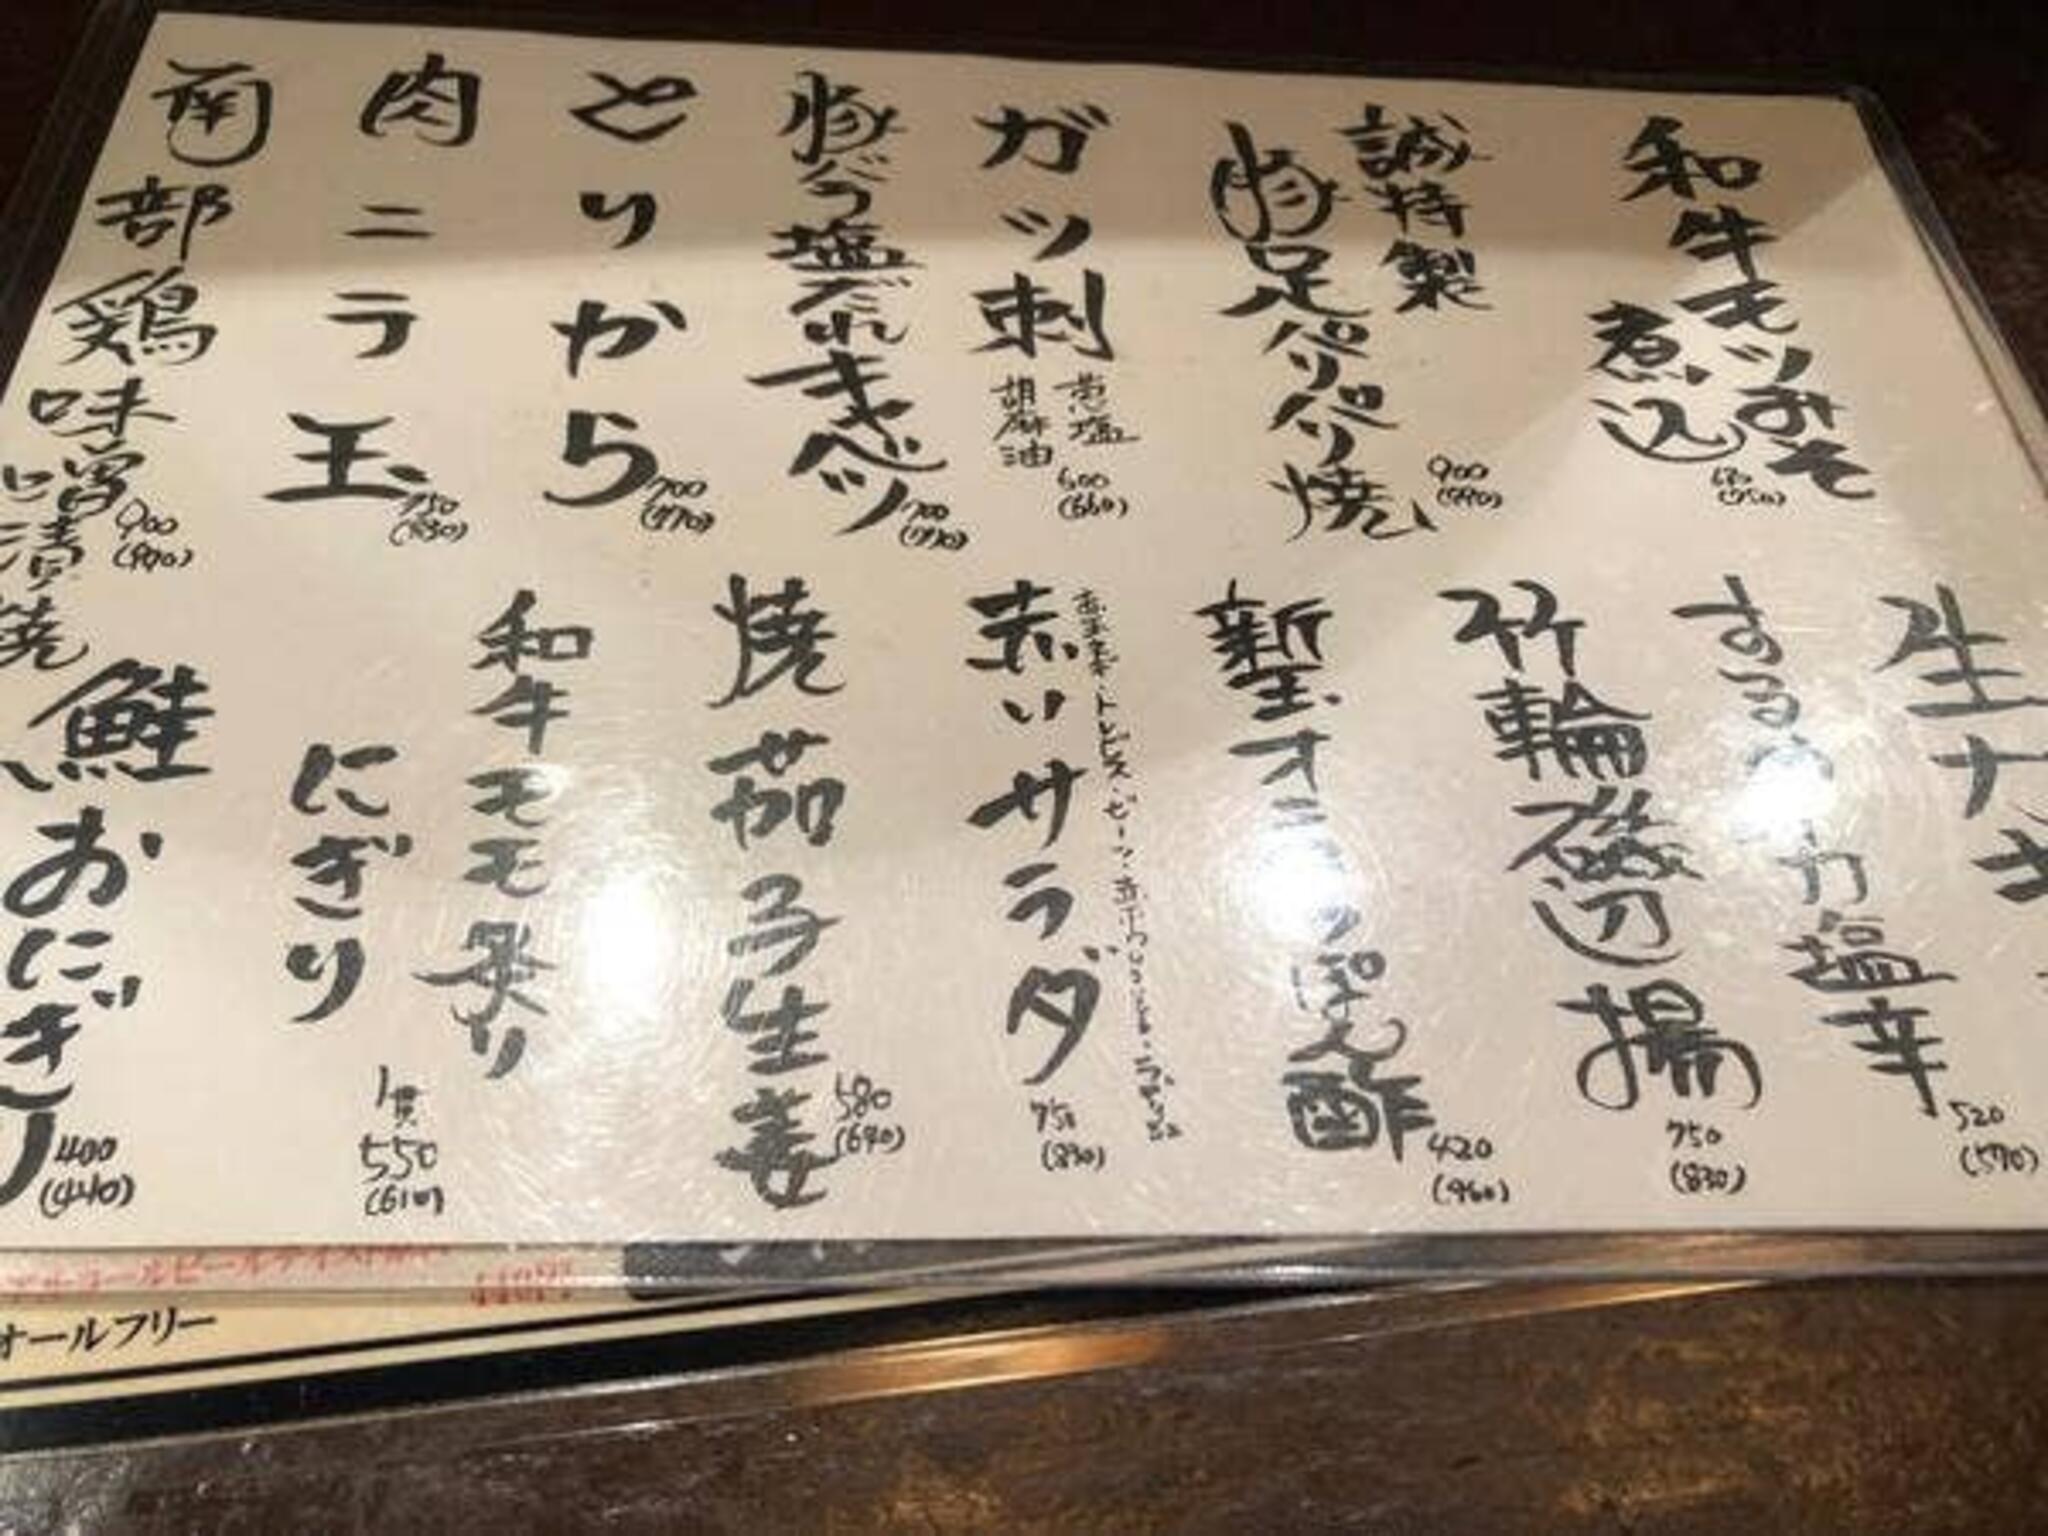 和牛モツみそ
煮込
680
(750)
誠特製
豚足パリパリ焼
900
(990)
ガツ刺
葱塩
胡麻油
600
(660)
豚バラ塩だれキャベツ
700
(770)
とりから
700
(770)
肉ニラ玉
750
(830)
南部鶏味噌漬焼
900
(990)
生ナ
するめイカ塩辛
520
(570)
竹輪磯辺揚
750
(830)
新玉オニオンぽん酢
420
(460)
赤いサラダ
750
(830)
焼茄子生姜
580
(640)
和牛モモ炙り
にぎり
1貫
550
(610)
鮭おにぎり
400
(440)
オールフリー